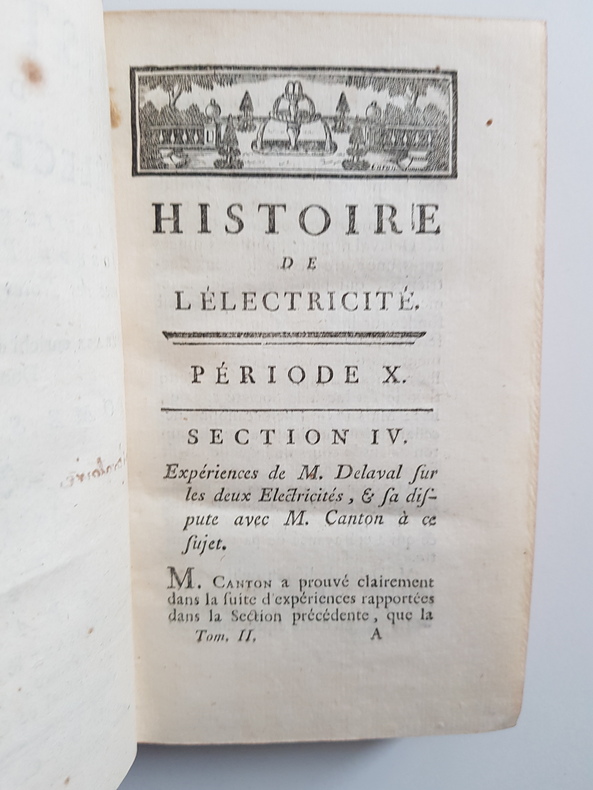 HISTOIRE
DE
L'ÉLECTRICITÉ.
PÉRIODE X.
SECTION IV.
Expériences de M. Delaval ſur
les deux Electricités, & ſa diſ-
pute avec M. Canton à ce
ſujet.
M. CANTON a prouvé clairement
dans la ſuite d'expériences rapportées
dans la Section précédente, que la
Tom. II. A